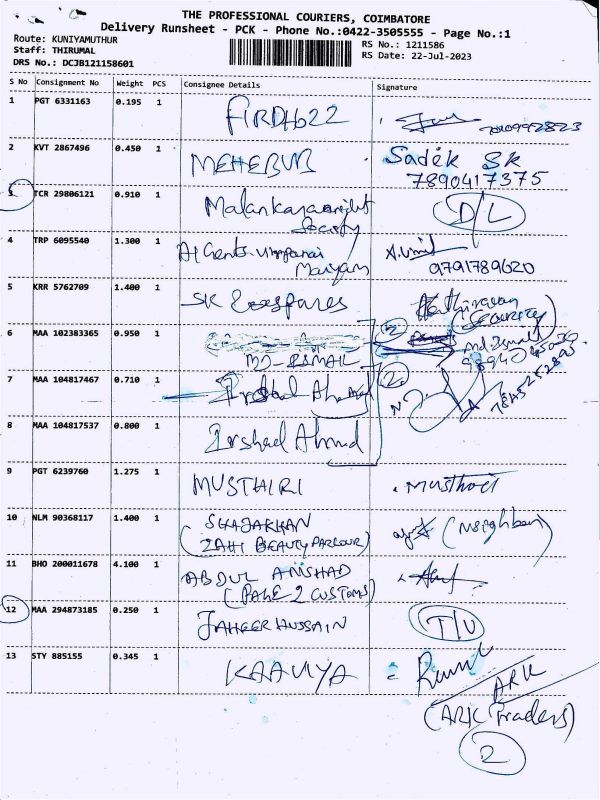 THE PROFESSIONAL COURIERS, COIMBATORE
Delivery Runsheet - PCK - Phone No.:0422-3505555 - Page No.:1
Route: KUNIYAMUTHUR
Staff: THIRUMAL
DRS No.: DCJB121158601
RS No.: 1211586
RS Date: 22-Jul-2023
S No Consignment No Weight PCS Consignee Details Signature
1 PGT 6331163 0.195 1
2 KVT 2867496 0.450 1 MEHEBUB Sadék SK
7890417375
3 TCR 29806121 0.910 1 D/L
Society
4 TRP 6095540 1.300 1
Mariyam 9791789620
5 KRR 5762709 1.400 1 SK
6 MAA 102383365 0.950 1
MD-ISMAIL
7 MAA 104817467 0.710 1 Irshad Ahamed
8 MAA 104817537 0.800 1 Irshad Ahmad
9 PGT 6239760 1.275 1 MUSTHIRI
10 NLM 90368117 1.400 1 SHAJAKHAN (Neighbour)
(ZAHI BEAUTY PARLOUR)
11 BHO 200011678 4.100 1 ABDUL AMSHAD
(PAGE 2 CUSTOMS)
12 MAA 294873185 0.250 1 JAHEER HUSSAIN
13 STY 885155 0.345 1 KAAVIYA
ARK
(ARK Traders)
2